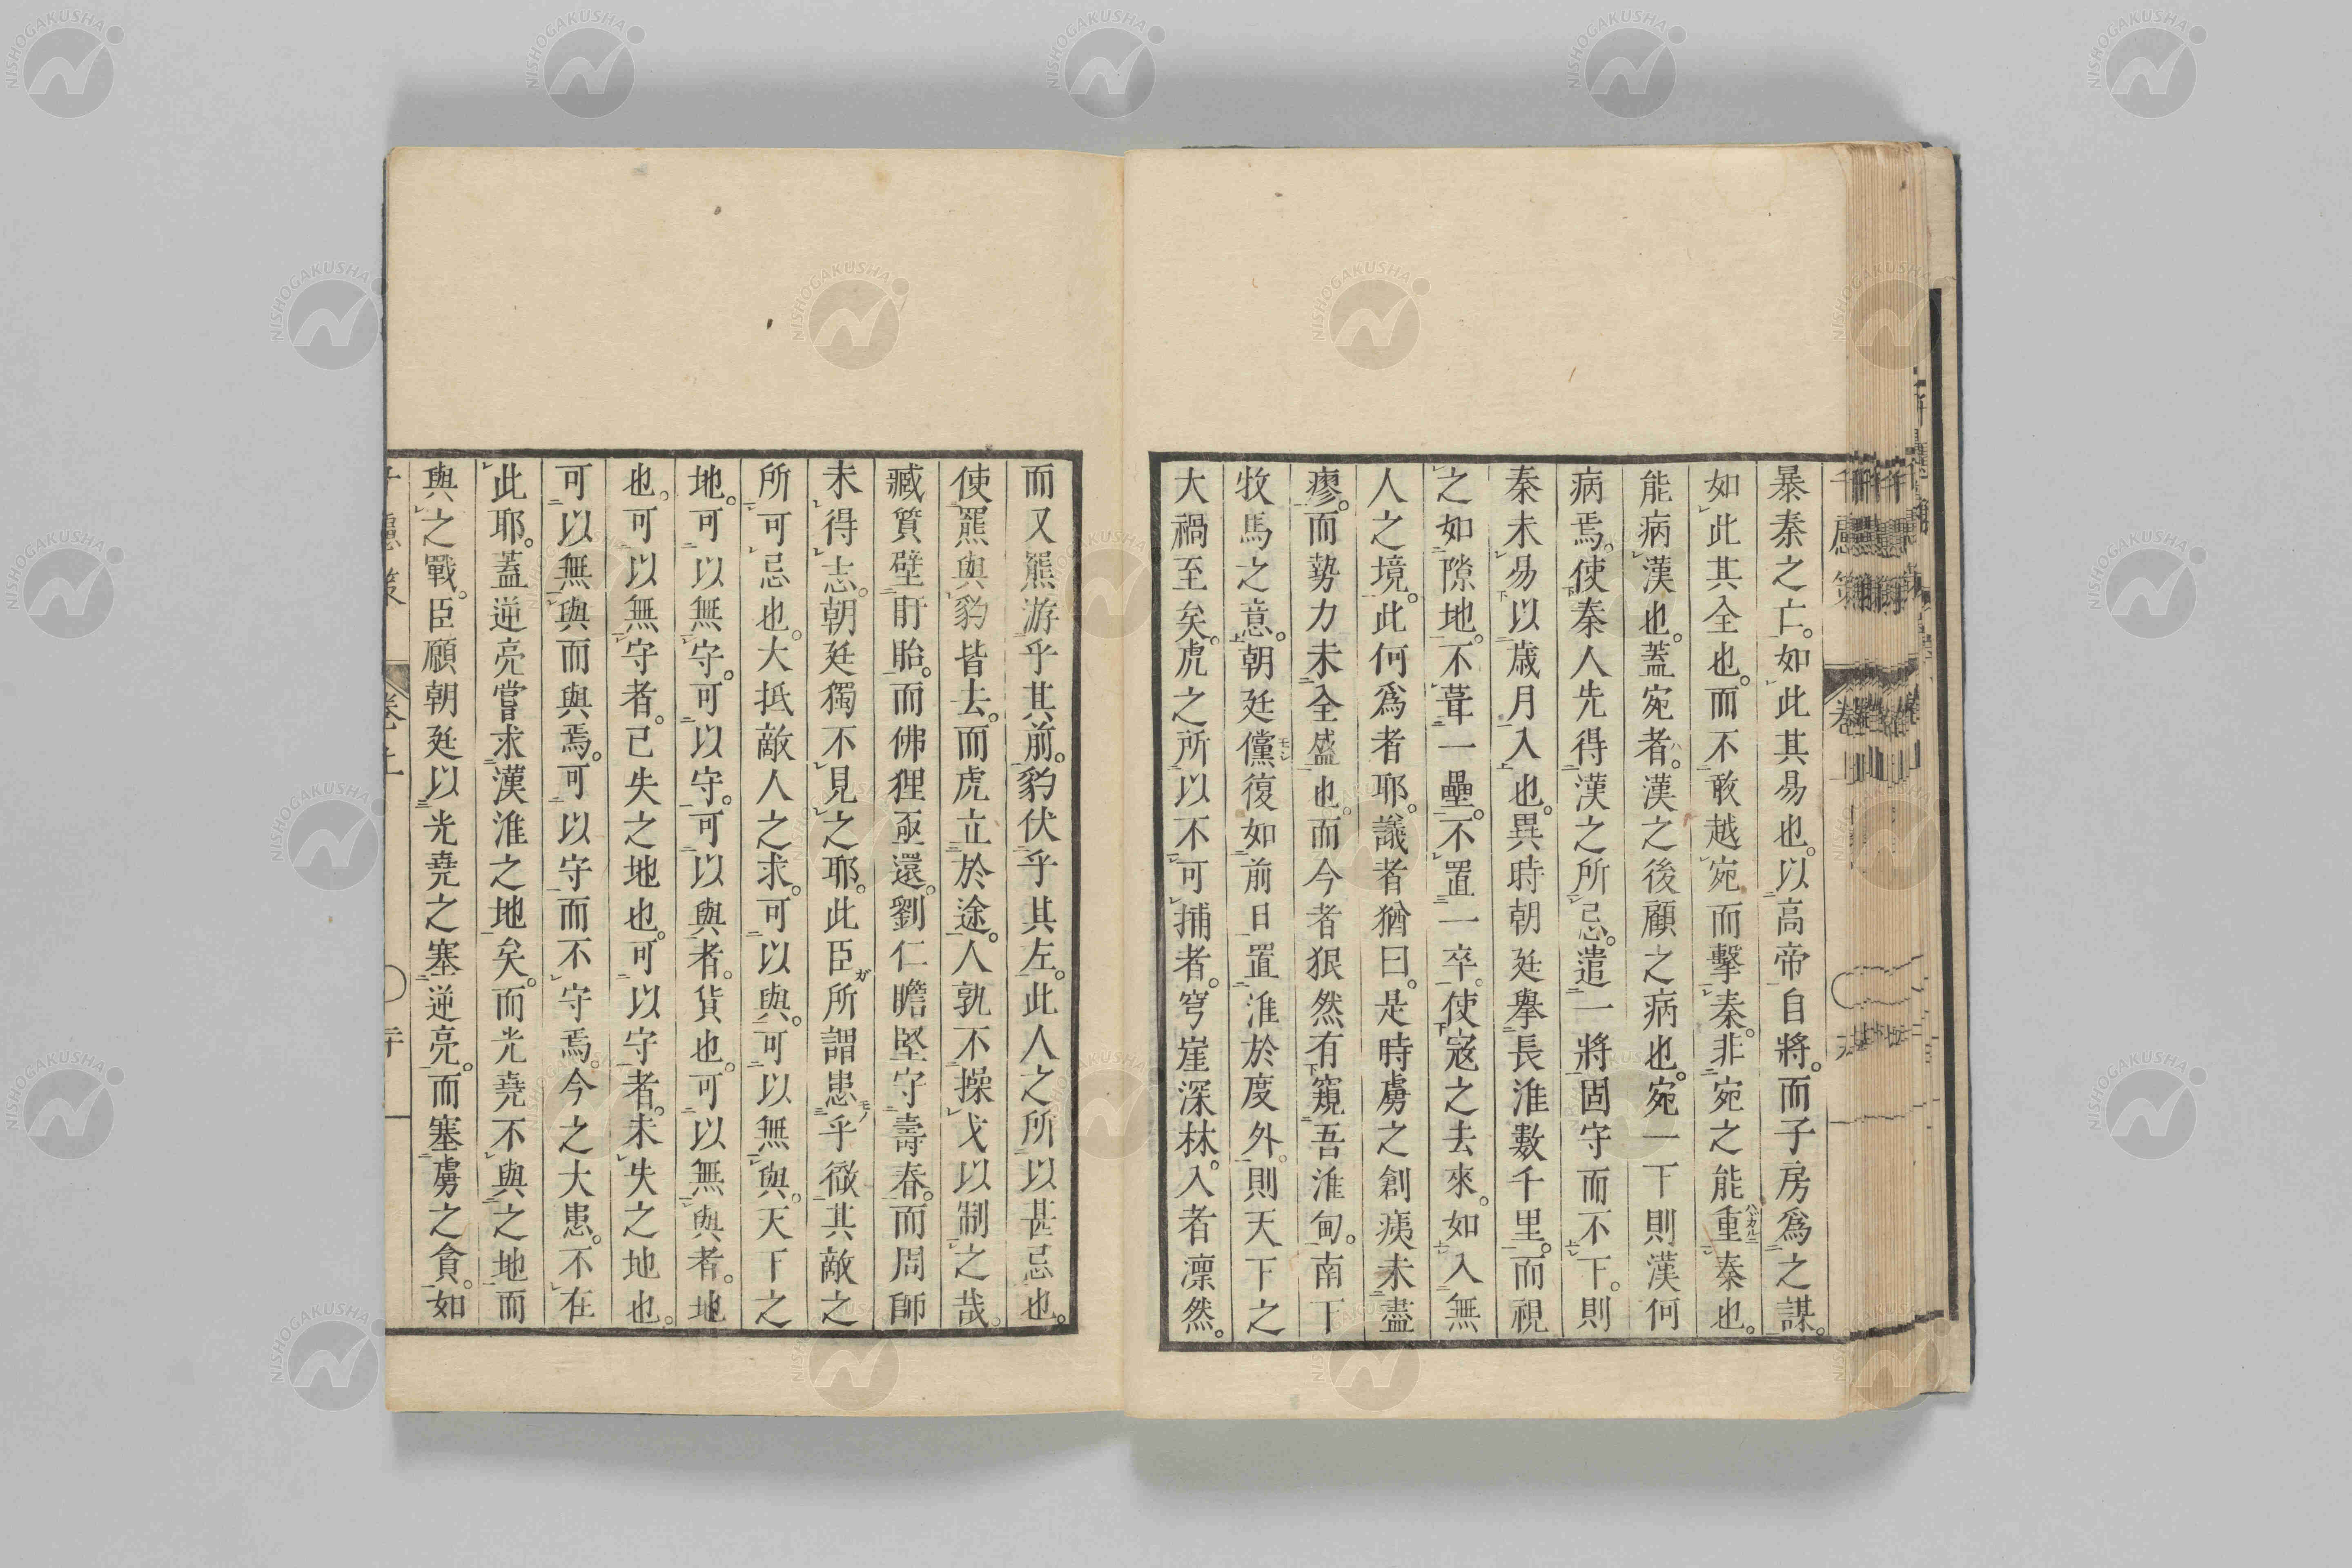 暴秦之亡。如此其易也。以高帝自將。而子房爲之謀。
如此其全也。而不敢越宛而擊秦。非宛之能重秦也。
能病漢也。蓋宛者。漢之後顧之病也。宛一下則漢何
病焉。使秦人先得漢之所忌。遣一將固守而不下。則
秦未易以歳月入也。異時朝廷擧長淮數千里。而視
之如隙地。不葺一壘。不置一卒。使寇之去來。如入無
人之境。此何爲者耶。議者猶曰。是時虜之創痍未盡
瘳。而勢力未全盛也。而今者狠然有窺吾淮甸。南下
牧馬之意。朝廷儻復如前日置淮於度外。則天下之
大禍至矣。虎之所以不可捕者。穹崖深林。入者凛然。
而又羆游乎其前。豹伏乎其左。此人之所以甚忌也。
使羆與豹皆去。而虎立於途。人孰不操戈以制之哉。
臧質壁盱眙。而佛狸亟還。劉仁瞻堅守壽春。而周師
未得志。朝廷獨不見之耶。此臣所謂患乎徴其敵之
所可忌也。大抵敵人之求。可以與。可以無與。天下之
地。可以無守。可以守。可以與者。貨也。可以無與者。地
也。可以無守者。已失之地也。可以守者。未失之地也。
可以無與而與焉。可以守而不守焉。今之大患。不在
此耶。蓋逆亮嘗求漢淮之地矣。而光堯不與之地而
與之戰。臣願朝廷以光堯之塞逆亮。而塞虜之貪。如
NISHOGAKUSHA